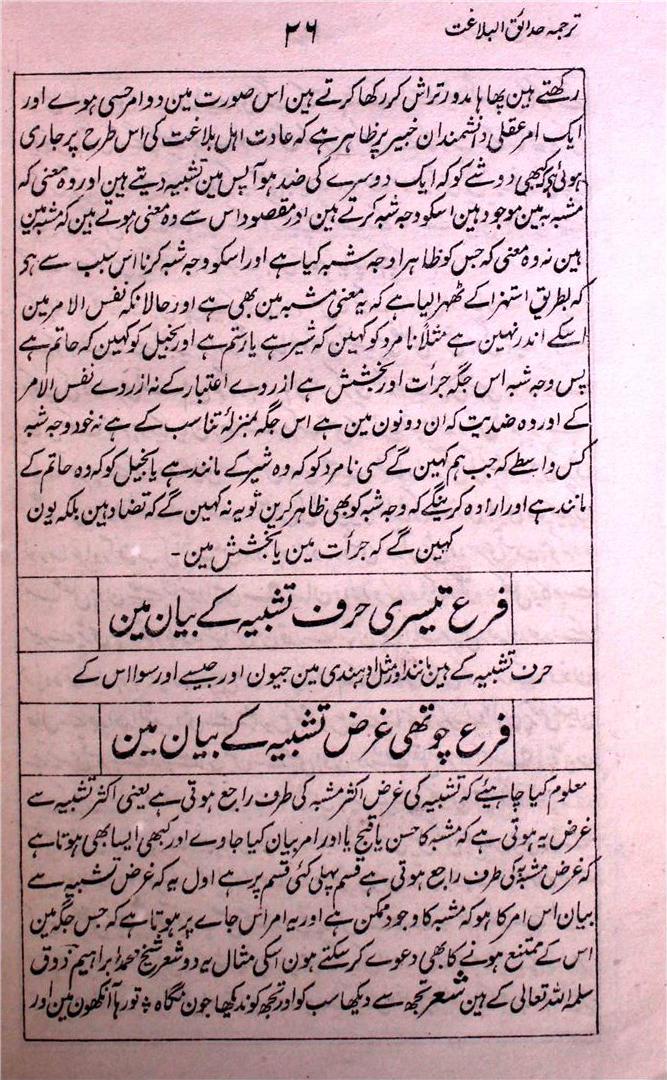 ترجمہ حدائق البلاغت
۲۶
رکھتے ہین پھاہا مدور تراش کر رکھا کرتے ہین اس صورت مین دو امر حسی ہوے اور
ایک امر عقلی دانشمندان خبیر پر ظاہر ہے کہ عادت اہل بلاغت کی اس طرح پر جاری
ہوئی ہے کہ کبھی دو شے کو کہ ایک دوسرے کی ضد ہو آپس مین تشبیہ دیتے ہین اور وہ معنی کہ
مشبہ بہ مین موجود ہین اسکو وجہ شبہ کرتے ہین اور مقصود اس سے وہ معنی ہوتے ہین کہ مشبہ مین
ہین نہ وہ معنی کہ جس کو ظاہرا وجہ شبہ کیا ہے اور اسکو وجہ شبہ کرنا اس سبب سے ہو
کہ بطریق استہزا کے ٹھہرالیا ہے کہ یہ معنی مشبہ مین بھی ہے اور حالانکہ نفس الامر مین
اسکے اندر نہین ہے مثلاً نامرد کو کہین کہ شیر ہے یا رستم ہے اور بخیل کو کہین کہ حاتم ہے
پس وجہ شبہ اس جگہ جرأت اور بخشش ہے از روے اعتبار کے نہ از روے نفس الامر
کے اور وہ ضدیت کہ ان دونون مین ہے اس جگہ بمنزلۂ تناسب کے ہے نہ خود وجہ شبہ
کس واسطے کہ جب ہم کہین گے کسی نامرد کو کہ وہ شیر کے مانند ہے یا بخیل کو کہ وہ حاتم کے
مانند ہے اور ارادہ کرینگے کہ وجہ شبہ کو بھی ظاہر کرین تو یہ نہ کہین گے کہ تضاد مین بلکہ یون
کہین گے کہ جرأت مین یا بخشش مین -
فرع تیسری حرف تشبیہ کے بیان مین
حرف تشبیہ کے ہین مانند اور مثل اور ہندی مین جیون اور جیسے اور سوا اس کے
فرع چوتھی غرض تشبیہ کے بیان مین
معلوم کیا چاہیئے کہ تشبیہ کی غرض اکثر مشبہ کی طرف راجع ہوتی ہے یعنی اکثر تشبیہ سے
غرض یہ ہوتی ہے کہ مشبہ کا حسن یا قبح یا اور امر بیان کیا جاوے اور کبھی ایسا بھی ہوتا ہے
کہ غرض مشبہ بہ کی طرف راجع ہوتی ہے قسم پہلی کئی قسم پر ہے اول یہ کہ غرض تشبیہ سے
بیان اس امر کا ہو کہ مشبہ کا وجود ممکن ہے اور یہ امر اس جاے پر ہوتا ہے کہ جس جگہ مین
اس کے ممتنع ہونے کا بھی دعوے کر سکتے ہون اسکی مثال یہ دو شعر شیخ محمد ابراہیم ذوق
سلمہ اللہ تعالی کے ہین شعر تجھ سے دیکھا سب کو اور تجھ کو ندیکھا جون نگاہ ٭ تو رہا آنکھون مین اور